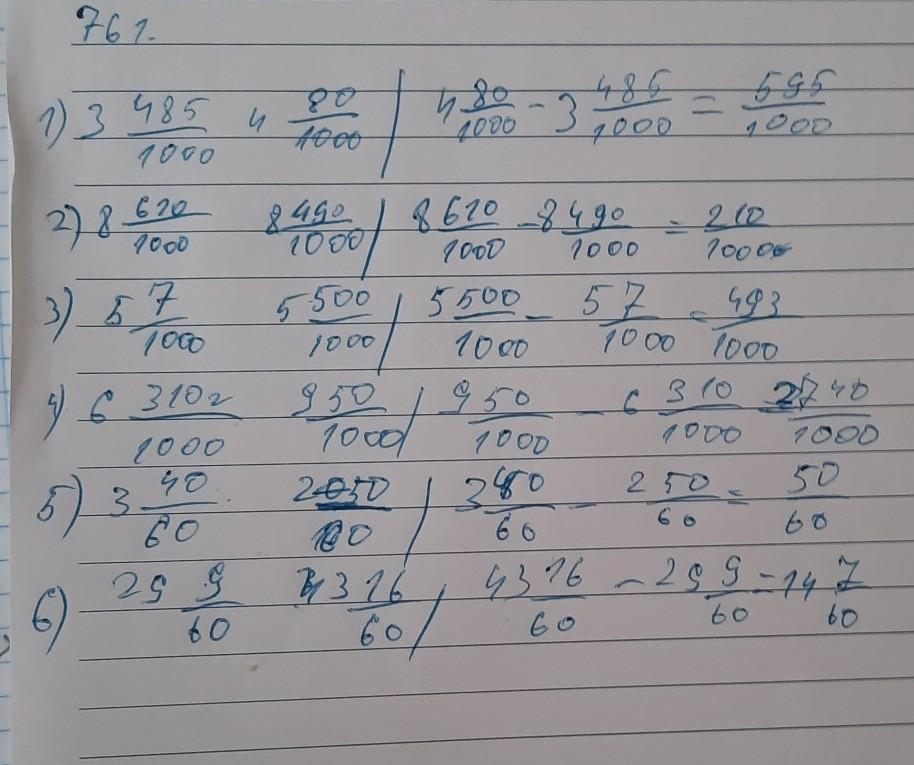 761.
1) 3 485/1000 4 80/1000 | 4 80/1000 - 3 485/1000 = 595/1000
2) 8 610/1000 8 490/1000 | 8 610/1000 - 8 490/1000 = 210/1000
3) 5 7/1000 5 500/1000 | 5 500/1000 - 5 7/1000 = 493/1000
4) 6 310г/1000 9 50/1000 | 9 50/1000 - 6 310/1000 = 2 740/1000
5) 3 40/60 2 50/60 | 3 40/60 - 2 50/60 = 50/60
6) 29 9/60 43 16/60 | 43 16/60 - 29 9/60 = 14 7/60